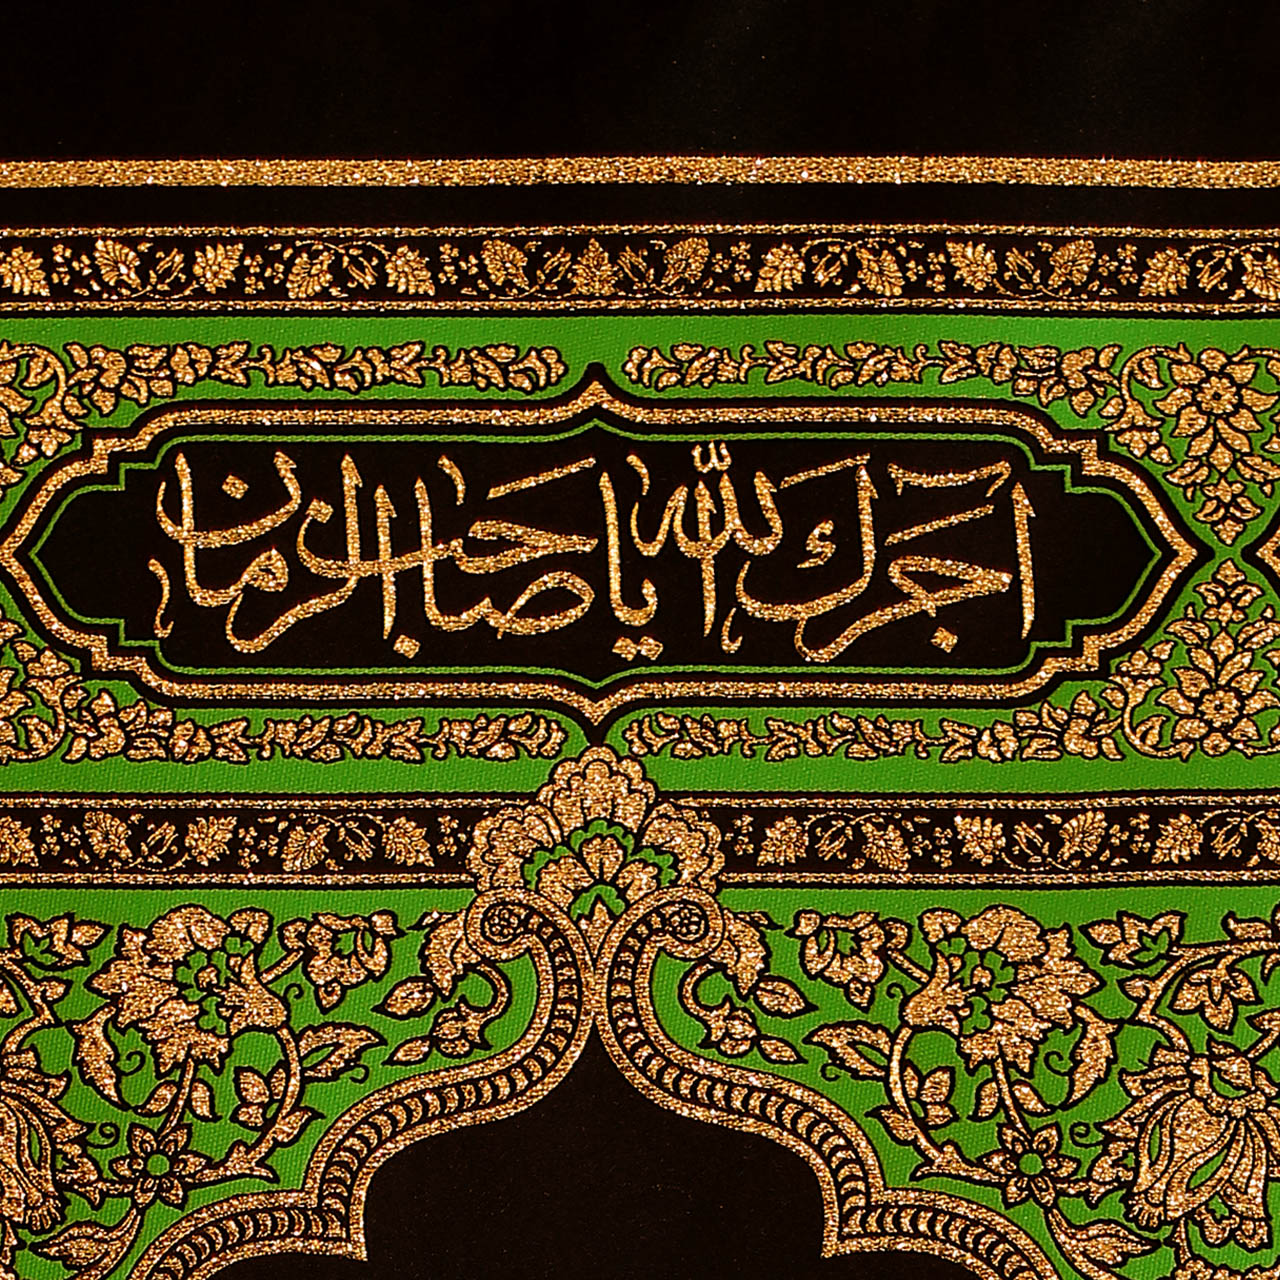 آجرك الله يا صاحب الزمان